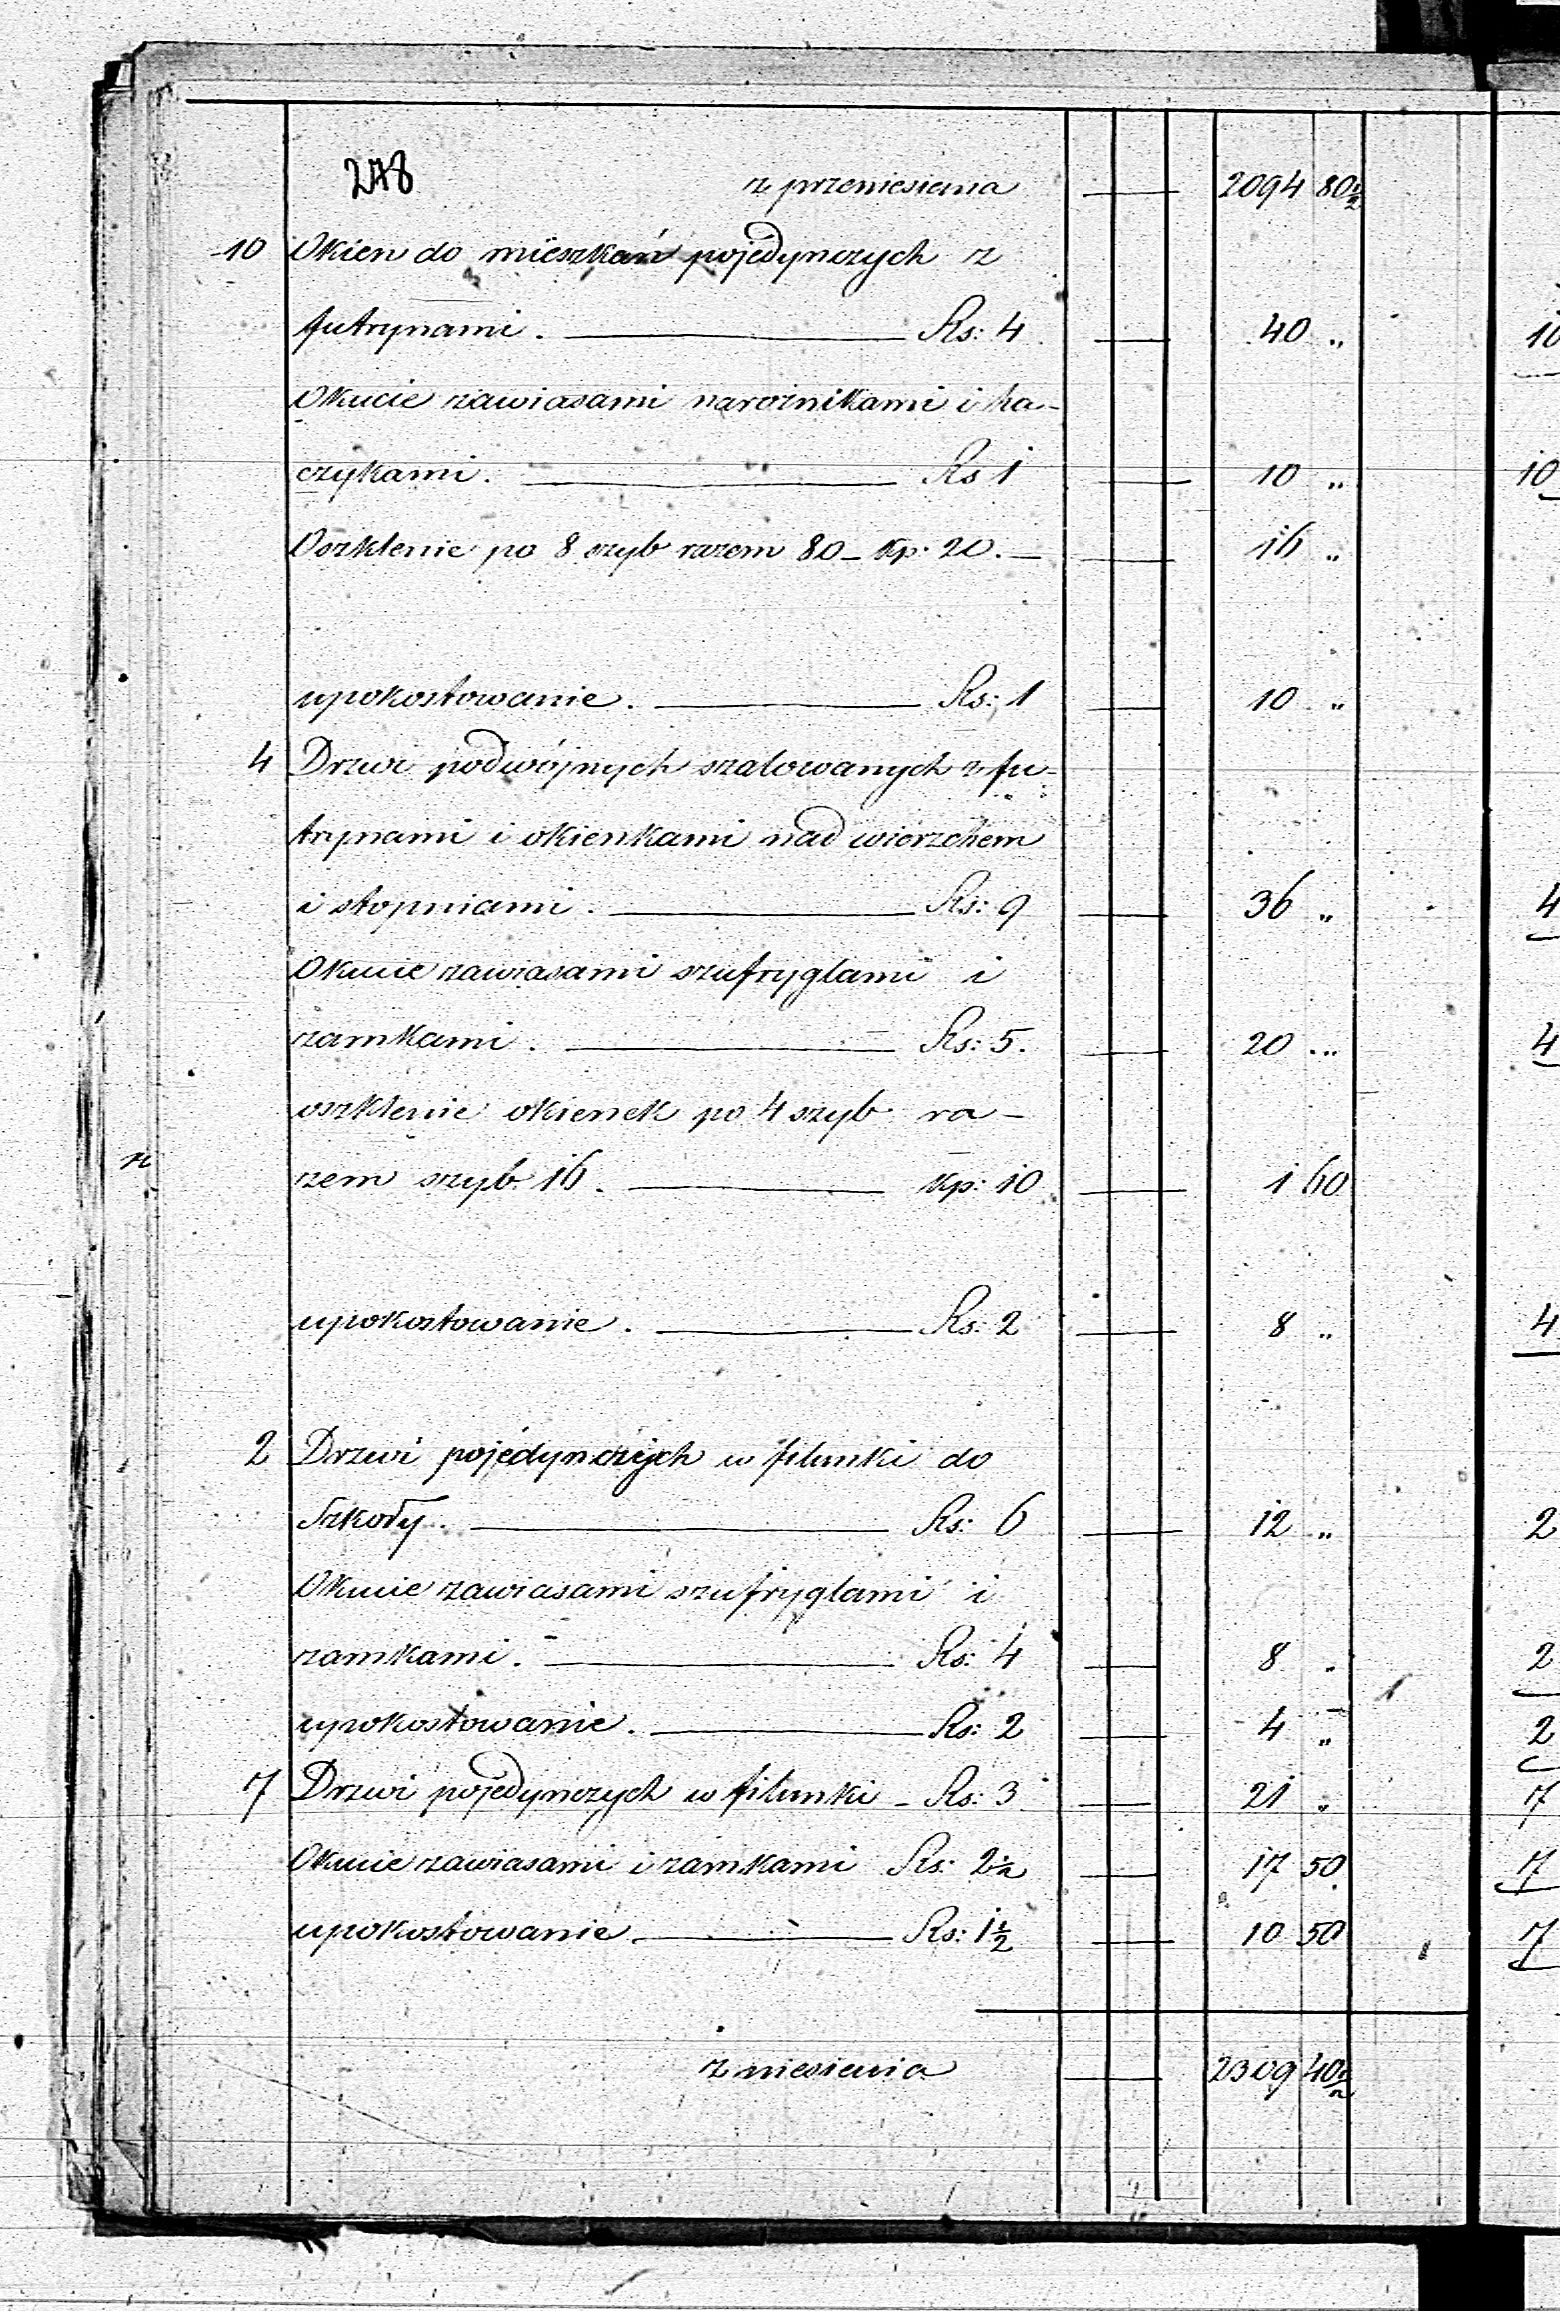 278
z przeniesienia — 2094 80½
10 Okien do mieszkań pojédynczych z
futrynami. — Rs: 4 — 40 „
Okucie zawiasami narożnikami i ha-
czykami. — Rs 1 — 10 „
Oszklenie po 8 szyb razem 80 – Kp. 20. — 16 „
upokostowanie. — Rs: 1 — 10 „
4 Drzwi podwójnych szalowanych z fu-
trynami i okienkami nad wierzchem
i stopniami. — Rs: 9 — 36 „
Okucie zawiasami szufryglami i
zamkami. — Rs: 5. — 20 „
oszklenie okienek po 4 szyb ra-
zem szyb 16. — Kp: 10 — 1 60
upokostowanie. — Rs: 2 — 8 „
2 Drzwi pojédynczych w filunki do
Szkoły. — Rs: 6 — 12 „
Okucie zawiasami szufryglami i
zamkami. — Rs: 4 — 8 „
upokostowanie. — Rs: 2 — 4 „
7 Drzwi pojedynczych w filunki – Rs: 3 — 21 „
Okucie zawiasami i zamkami Rs: 2½ — 17 50
upokostowanie. — Rs: 1½ — 10 50
zniesienia — 2309 40½
10
10
4
4
4
2
2
2
7
7
7